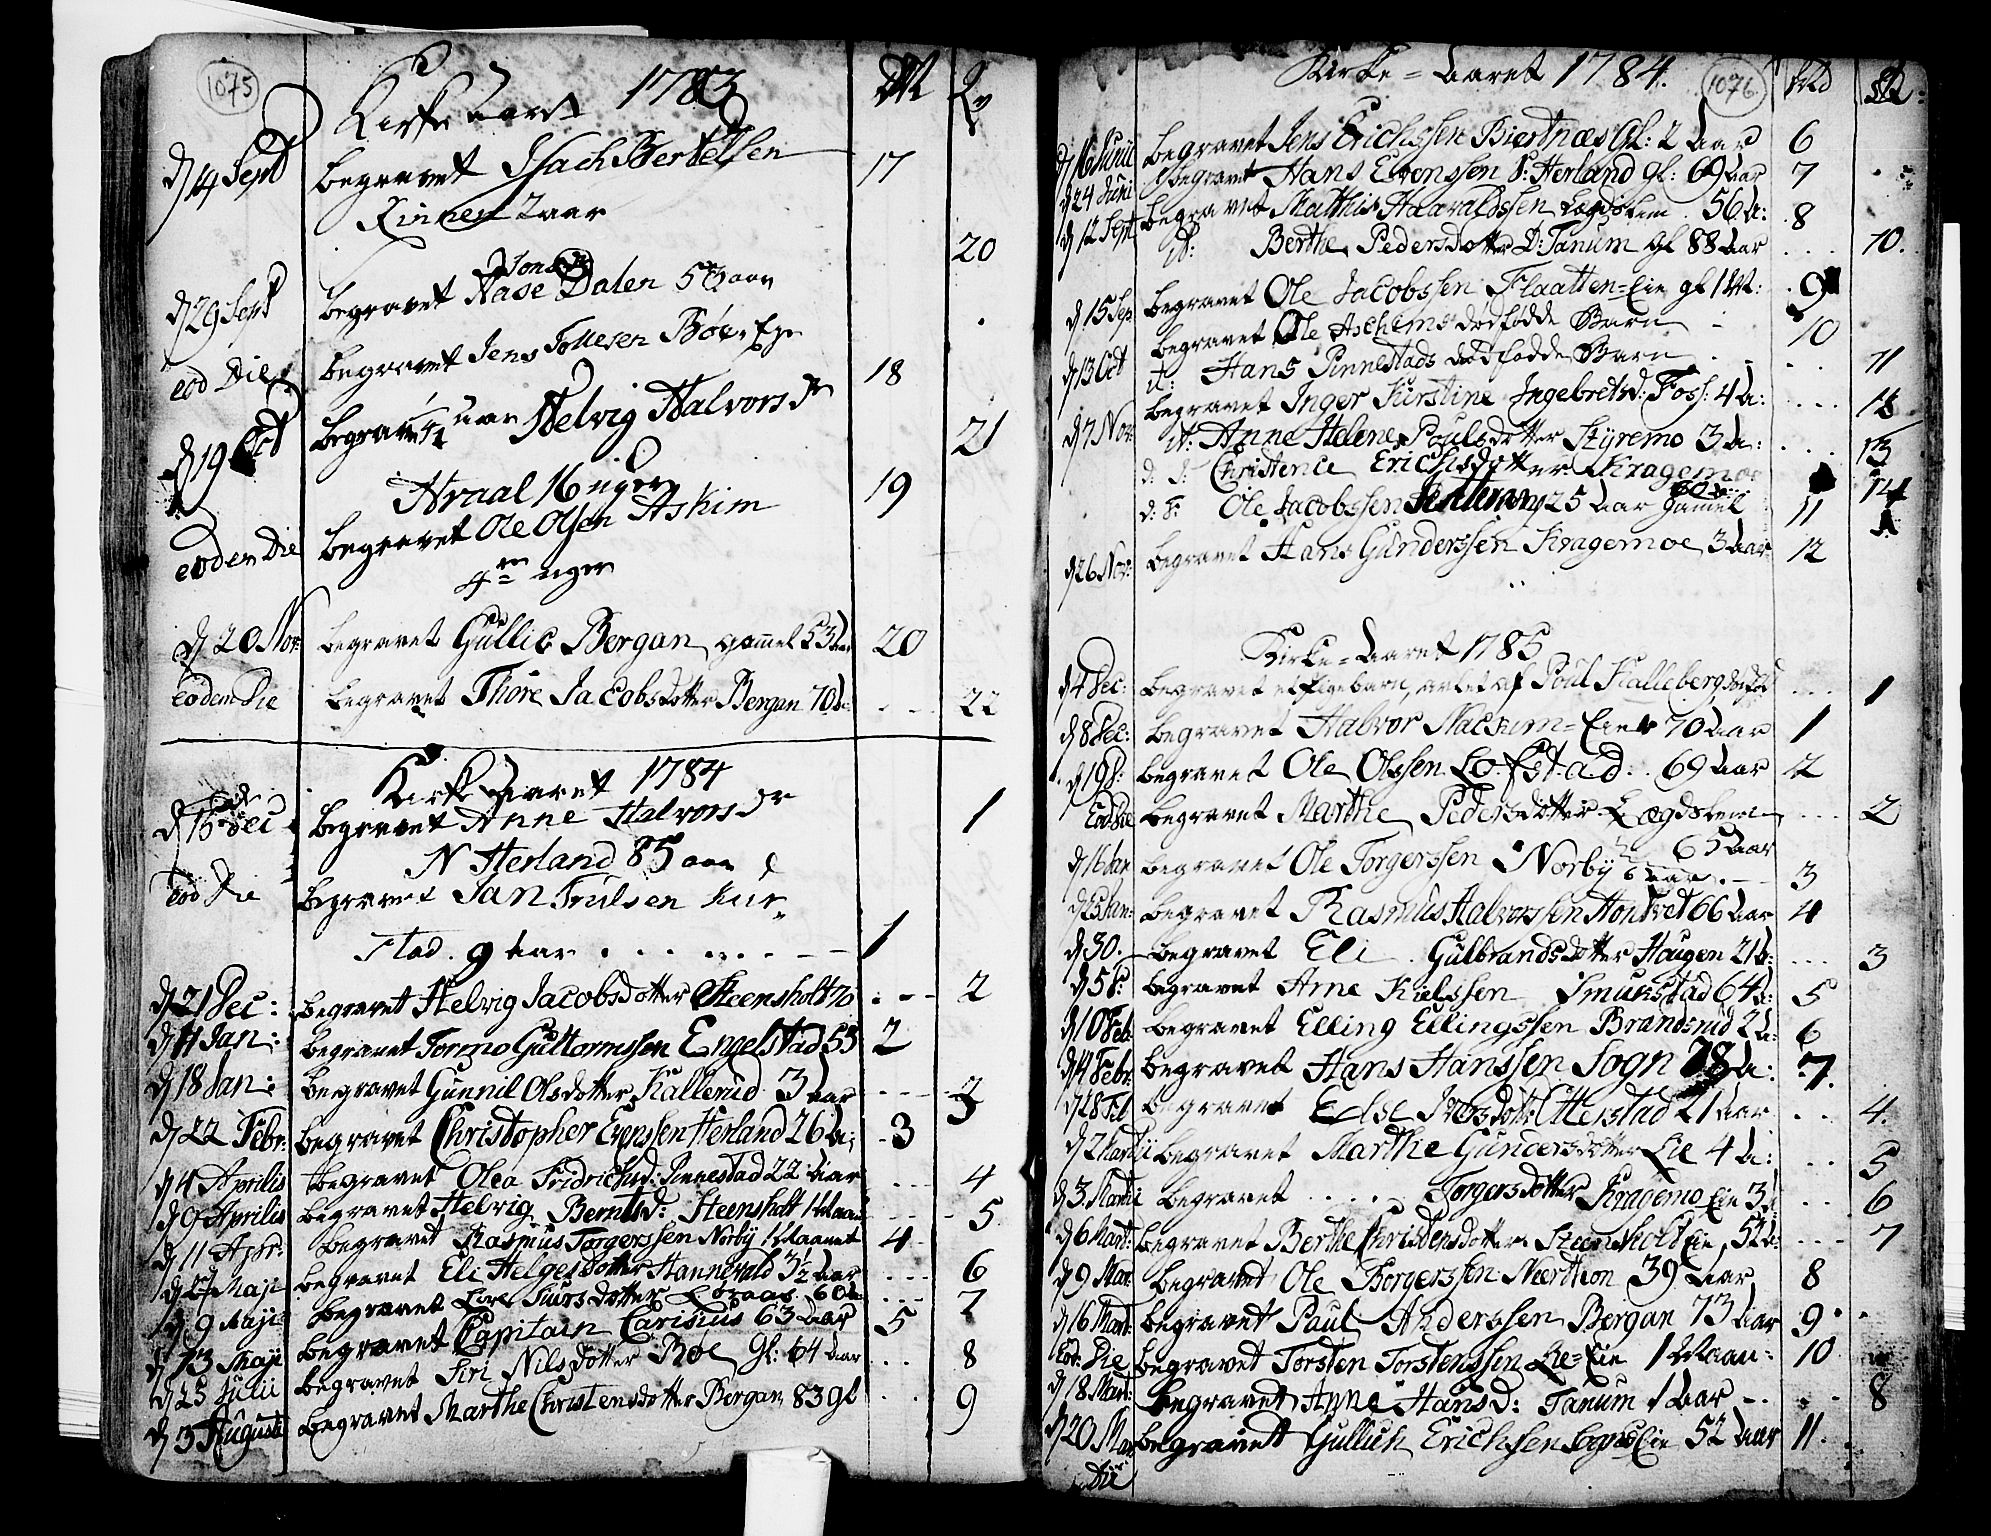 1075
Kirke Aaret 1783 M Qv
d 14 Sept begravet Isach Bertelsen 17
Kinnes 2 aar
20
Jons D
d 29 Sept begravet Aase Dalen 53 aar
eod Die begravet Jens Tollesen Bøe Eje
18
d 19 Oct begravet aar Helvig Halvors Dr
21
Araal 16 uger 19
eodem Die begravet Ole Olsen Askim
4re uger
d 20 Nov: begravet Gullic Bergan gamel 53 Aar 20
eodem Die begravet Thore Jacobsdotter Bergan 70 A: 22
Kirke Aaret 1784
d 15 Dec begravet Anne Halvors Dr 1
N Herland 85 aar
eod Die begravet Jan Trulsen Kur
stad. 9 Aar 1
d 21 Dec: begravet Helvig Jacobsdotter Steensholt 70 2
d 11 Jan: begravet Tormo Guttormssen Engelstad 53 2
d 18 Jan: begravet Gunnil Olsdotter Kallerud 3 Aar 3
d 22 Febr: begravet Christopher Evenssen Herland 26 A: 3
d 4 Aprilis begravet Olea Fridrichsd: Pinnestad 22 Aar 4
d 9 Aprilis begravet Helvig Berntsd: Steensholt 1 Maan 5
d 11 Apr: begravet Rasmus Torgerssen Norby 1 Maanet 4
d Maji begravet Eli Helgesdotter Hannevold 3½ Aar 6
d 9 Maji begravet Live Tursdotter 60 A 7
d 13 Maji begravet Capitain Carisius 63 Aar 5
d 25 Julii begravet Siri Nilsdotter Bøe Gl: 64 Aar 8
d 3 Augusti begravet Marthe Christensdotter Bergan 83 Gl 9
Kirke=Aaret 1784. 1076
d 16 Junii begravet Jens Erichssen Biertnæs Gl: 2 Aar 6
d 24 Juni begravet Hans Evenssen S: Herland gl: 69 Aar 7
d 12 Sept begravet Matthis Haavaldssen Lægdslem 56 A: 8
it: Berthe Pedersdotter D: Tanum gl 88 Aar 10.
d 15 Sep begravet Ole Jacobssen Flaatten=Eie gl 1 M: 9
begravet Ole Aschems dødfødde Barn 10
d 13 Oct it: Hans Pinnestads dødfødde Barn 11
begravet Inger Kirstine Ingebretsd: Foss: 4 A: 12
d 7 Nov: it: Anne Helene Poulsdotter Styremo 3 A: 13
d: d: Christence Erichsdotter Kragemoe 14
d: d: Ole Jacobssen 25 Aar gamel 11
d 26 Nov: begravet Hans Gunderssen Kragemoe 3 Aar 12
Kirke=Aaret 1785
d 4 Dec: begravet et Pigebarn, avlet af Poul Kalleberg, dødfød 1
d 8 Dec: begravet Halvor Nackim=Eie 70 Aar 1
d 19 d: begravet Ole Olssen Lofstad. 69 Aar 2
Eod Die begravet Marthe Pedersdotter Lægdslem 2
65 Aar
d 16 Jan begravet Ole Torgerssen Norby 6 Aar 3
d 25 Jan: begravet Rasmus Halvorssen Hontvet 66 Aar 4
d 30. begravet Eli Gulbrandsdotter Haugen 21 A: 3
d 5 F: begravet Arne Kielssen Smukestad 64 A: 5
d 10 Feb begravet Elling Ellingssen Brandsrud 2 A: 6
d 14 Febr: begravet Hans Hanssen Sogn 78 A: 7.
d 28 Feb begravet Else Iversdott: Otterstad 21 Aar 4.
d 2 Martii begravet Marthe Gundersdotter Lie 4 A: 5
d 3 Martii begravet . . . . Torgersdotter Kragemo Eie 3 A 6
d 6 Mart: begravet Berthe Christensdotter Steensholt Eie 52 A: 7
d 9 Mar begravet Ole Borgerssen Narthon 39 Aar 8
d 16 Mart: begravet Paul Anderssen Bergan 73 Aar 9
Eod: Die begravet Torsten Torstenssen Lie=Eie 1 Maan: 10
d 18 Mart: begravet Anne Hansd: Tanum 1 Aar 8
d 20 Mar begravet Gullich Erichsen Sogns Eie 52 Aar 11.